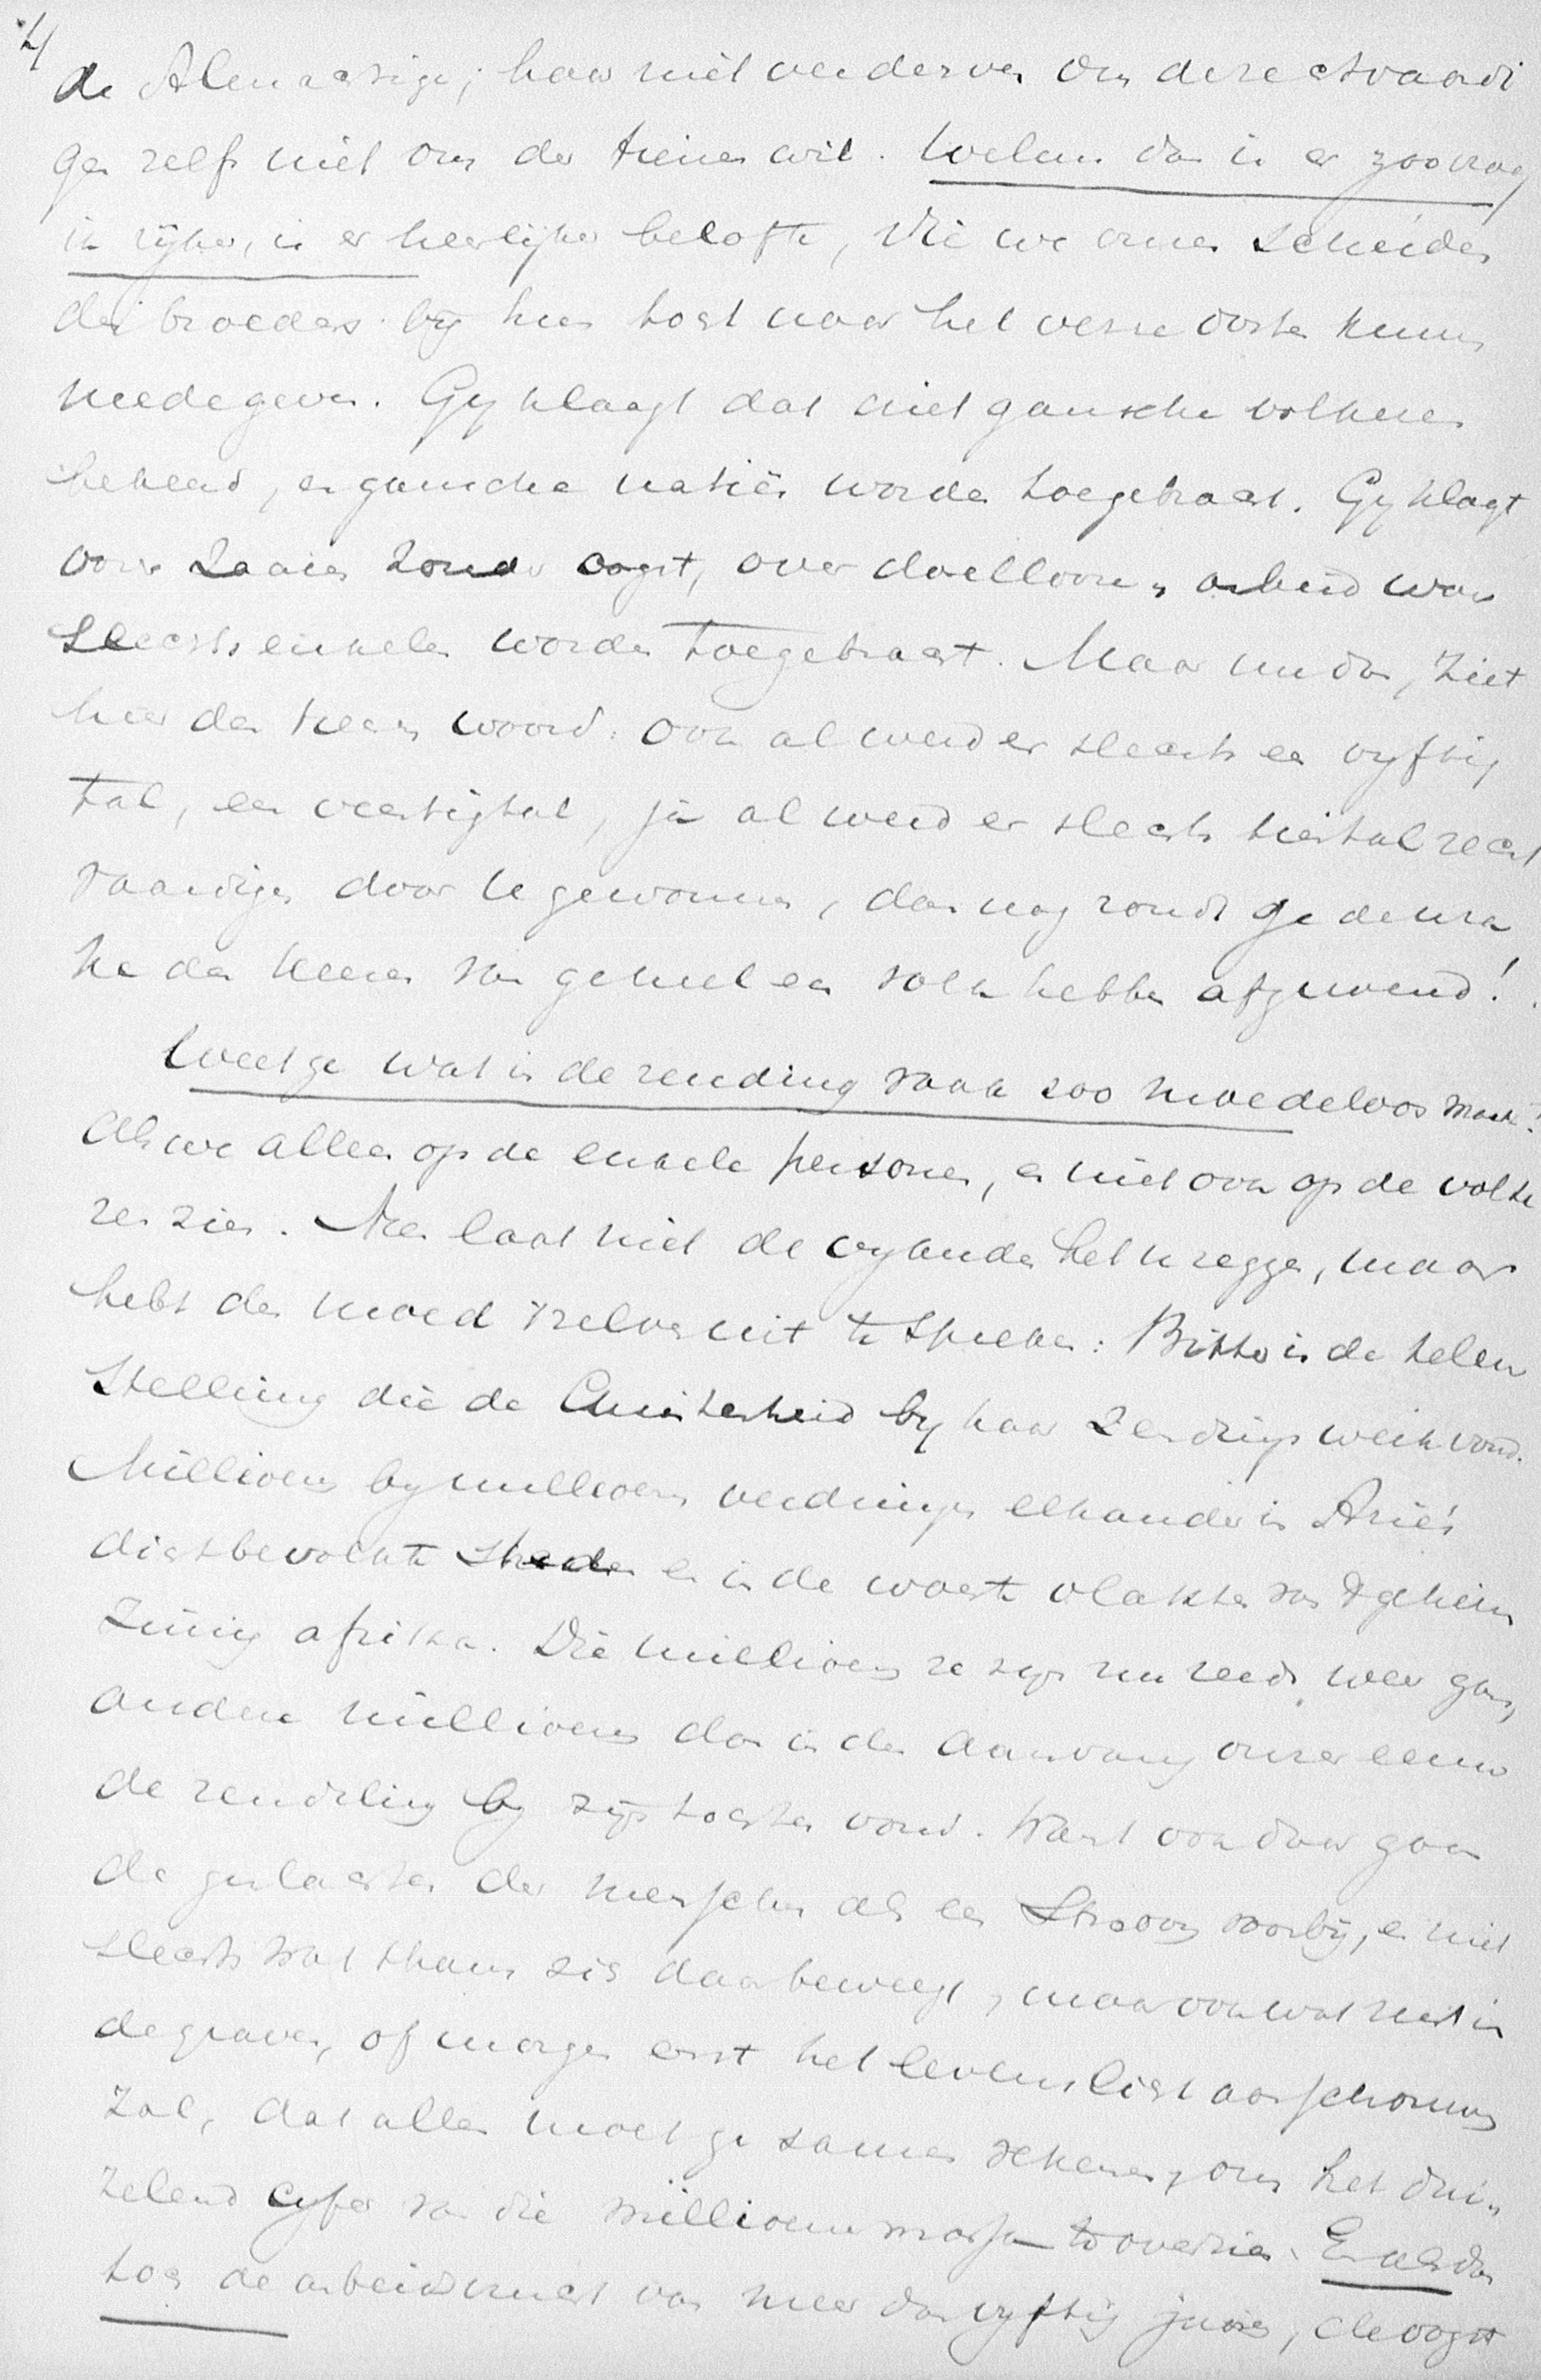 4/
de Almachtige; haar niet verderven om deze rechtvaardi
gen zelfs niet om der tienen wil. Welnu dan is er zoo vraag
ik rijker, is er heerlijker belofte, die we onzen scheiden
den broeders bij hun tocht naar het verre oosten kunnen
medegeven. Gy klaagt dat niet gansche volkeren
bekeerd, en gansche natiën worden toegebracht. Gy klaagt
over zaaien zonder oogst, over doelloozen arbeid waar
slechts enkelen worden toegebracht. Maar nu dan, ziet
hier des Heeren woord: ook al werd er slechts een vyftig
tal, een veertigtal, ja al werd er slechts tiental recht
vaardigen door u gewonnen, dan nog zoudt ge de wra
ke des Heeren van geheel een volk hebben afgewend!
Weet ge wat in de zending vaak zoo moedeloos maakt?
Als we alleen op de enkele personen, en niet ook op de volke
ren zien. Neen laat niet de vyanden het u zeggen, maar
hebt den moed 't zelven uit te spreken: Bitter is de teleur
stelling die de Christenheid by haar zendingswerk vond.
Millioenen by millioenen verdringen elkander in Azië's
dichtbevolkte steden en in de woeste vlakten van 't geheim
zinnig afrika. Die millioenen ze zijn nu reeds weer gansch
andere millioenen dan in den aanvang onzer eeuw
de zendeling by zijn tochten vond. Want ook daar gaan
de geslachten der menschen als een stroom voorbij, en niet
slechts wat thans zich daar beweegt, maar ook wat rust in
de graven, of morgen eerst het levenslicht aanschouwen
zal, dat alles moet ge samen rekenen, om het dui-
zelend cyfer van die millioenen massa te overzien. En als dan
toch de arbeidsvrucht van meer dan vyftig jaren, de oogst